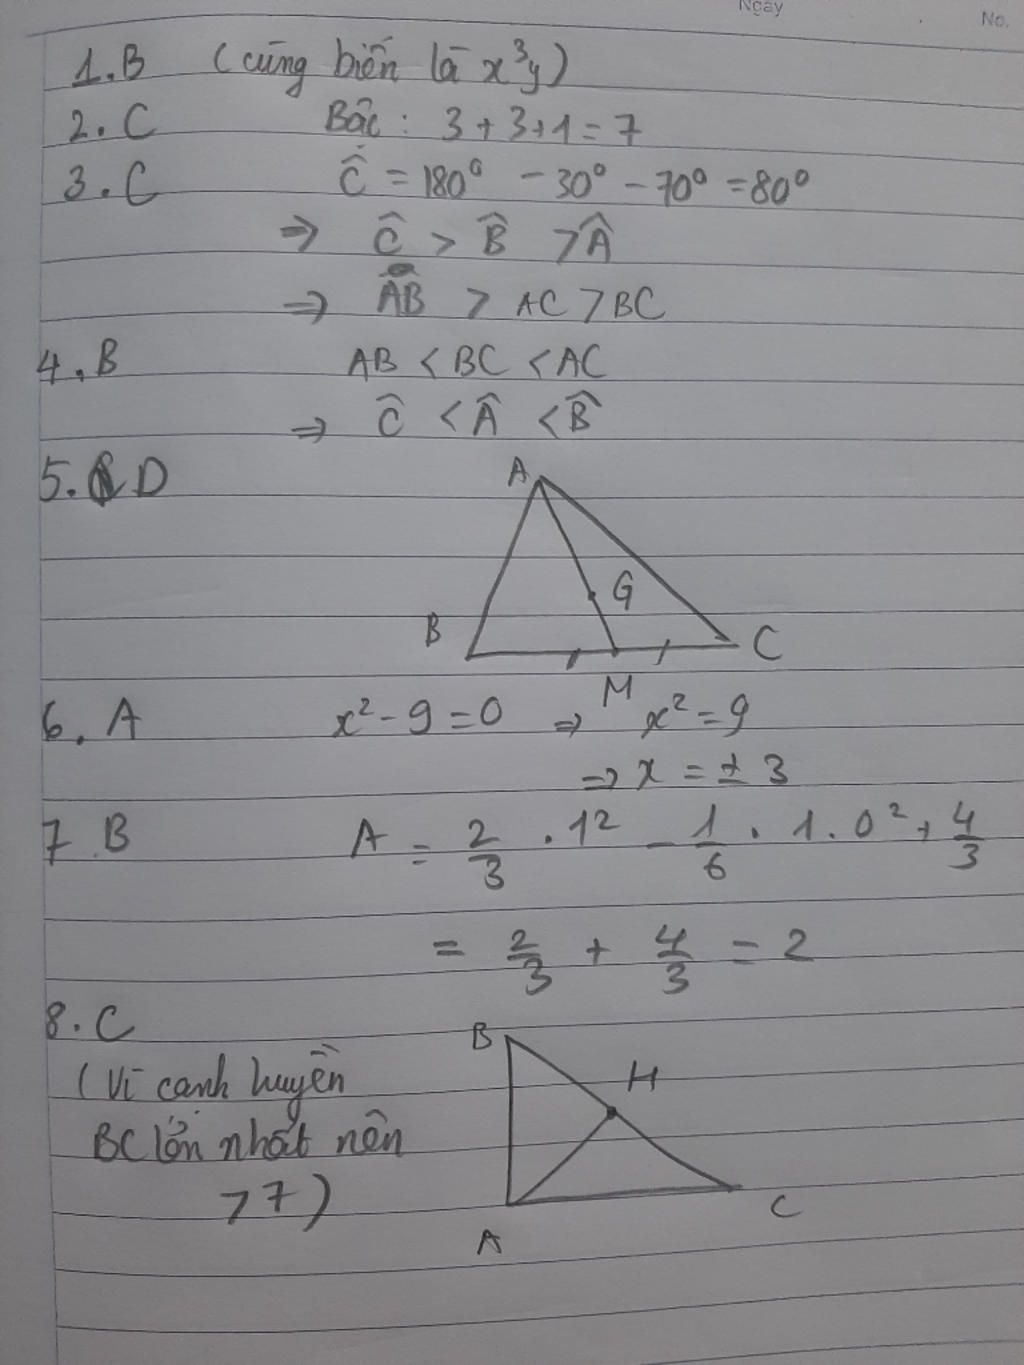 Ngày
No.
1.B (cùng biến là x³y)
2. C Bậc : 3 + 3 + 1 = 7
3. C Ĉ = 180⁰ - 30⁰ - 70⁰ = 80⁰
⇒ Ĉ > B̂ > Â
⇒ AB > AC > BC
4. B AB < BC < AC
⇒ Ĉ < Â < B̂
5. D
A
G
B
C
M
6. A x² - 9 = 0 ⇒ x² = 9
⇒ x = ± 3
7 B A = 2/3 . 1² - 1/6 . 1 . 0² + 4/3
= 2/3 + 4/3 = 2
8. C
B
H
(Vì cạnh huyền
BC lớn nhất nên
> 7)
C
A